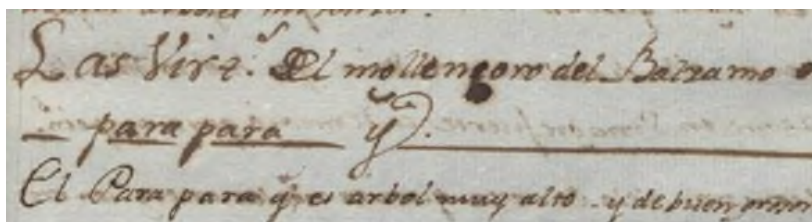 Las Virt.s El mollengoro del Balzamo
para para &.
El Para para q̃ es arbol muy alto y de buen